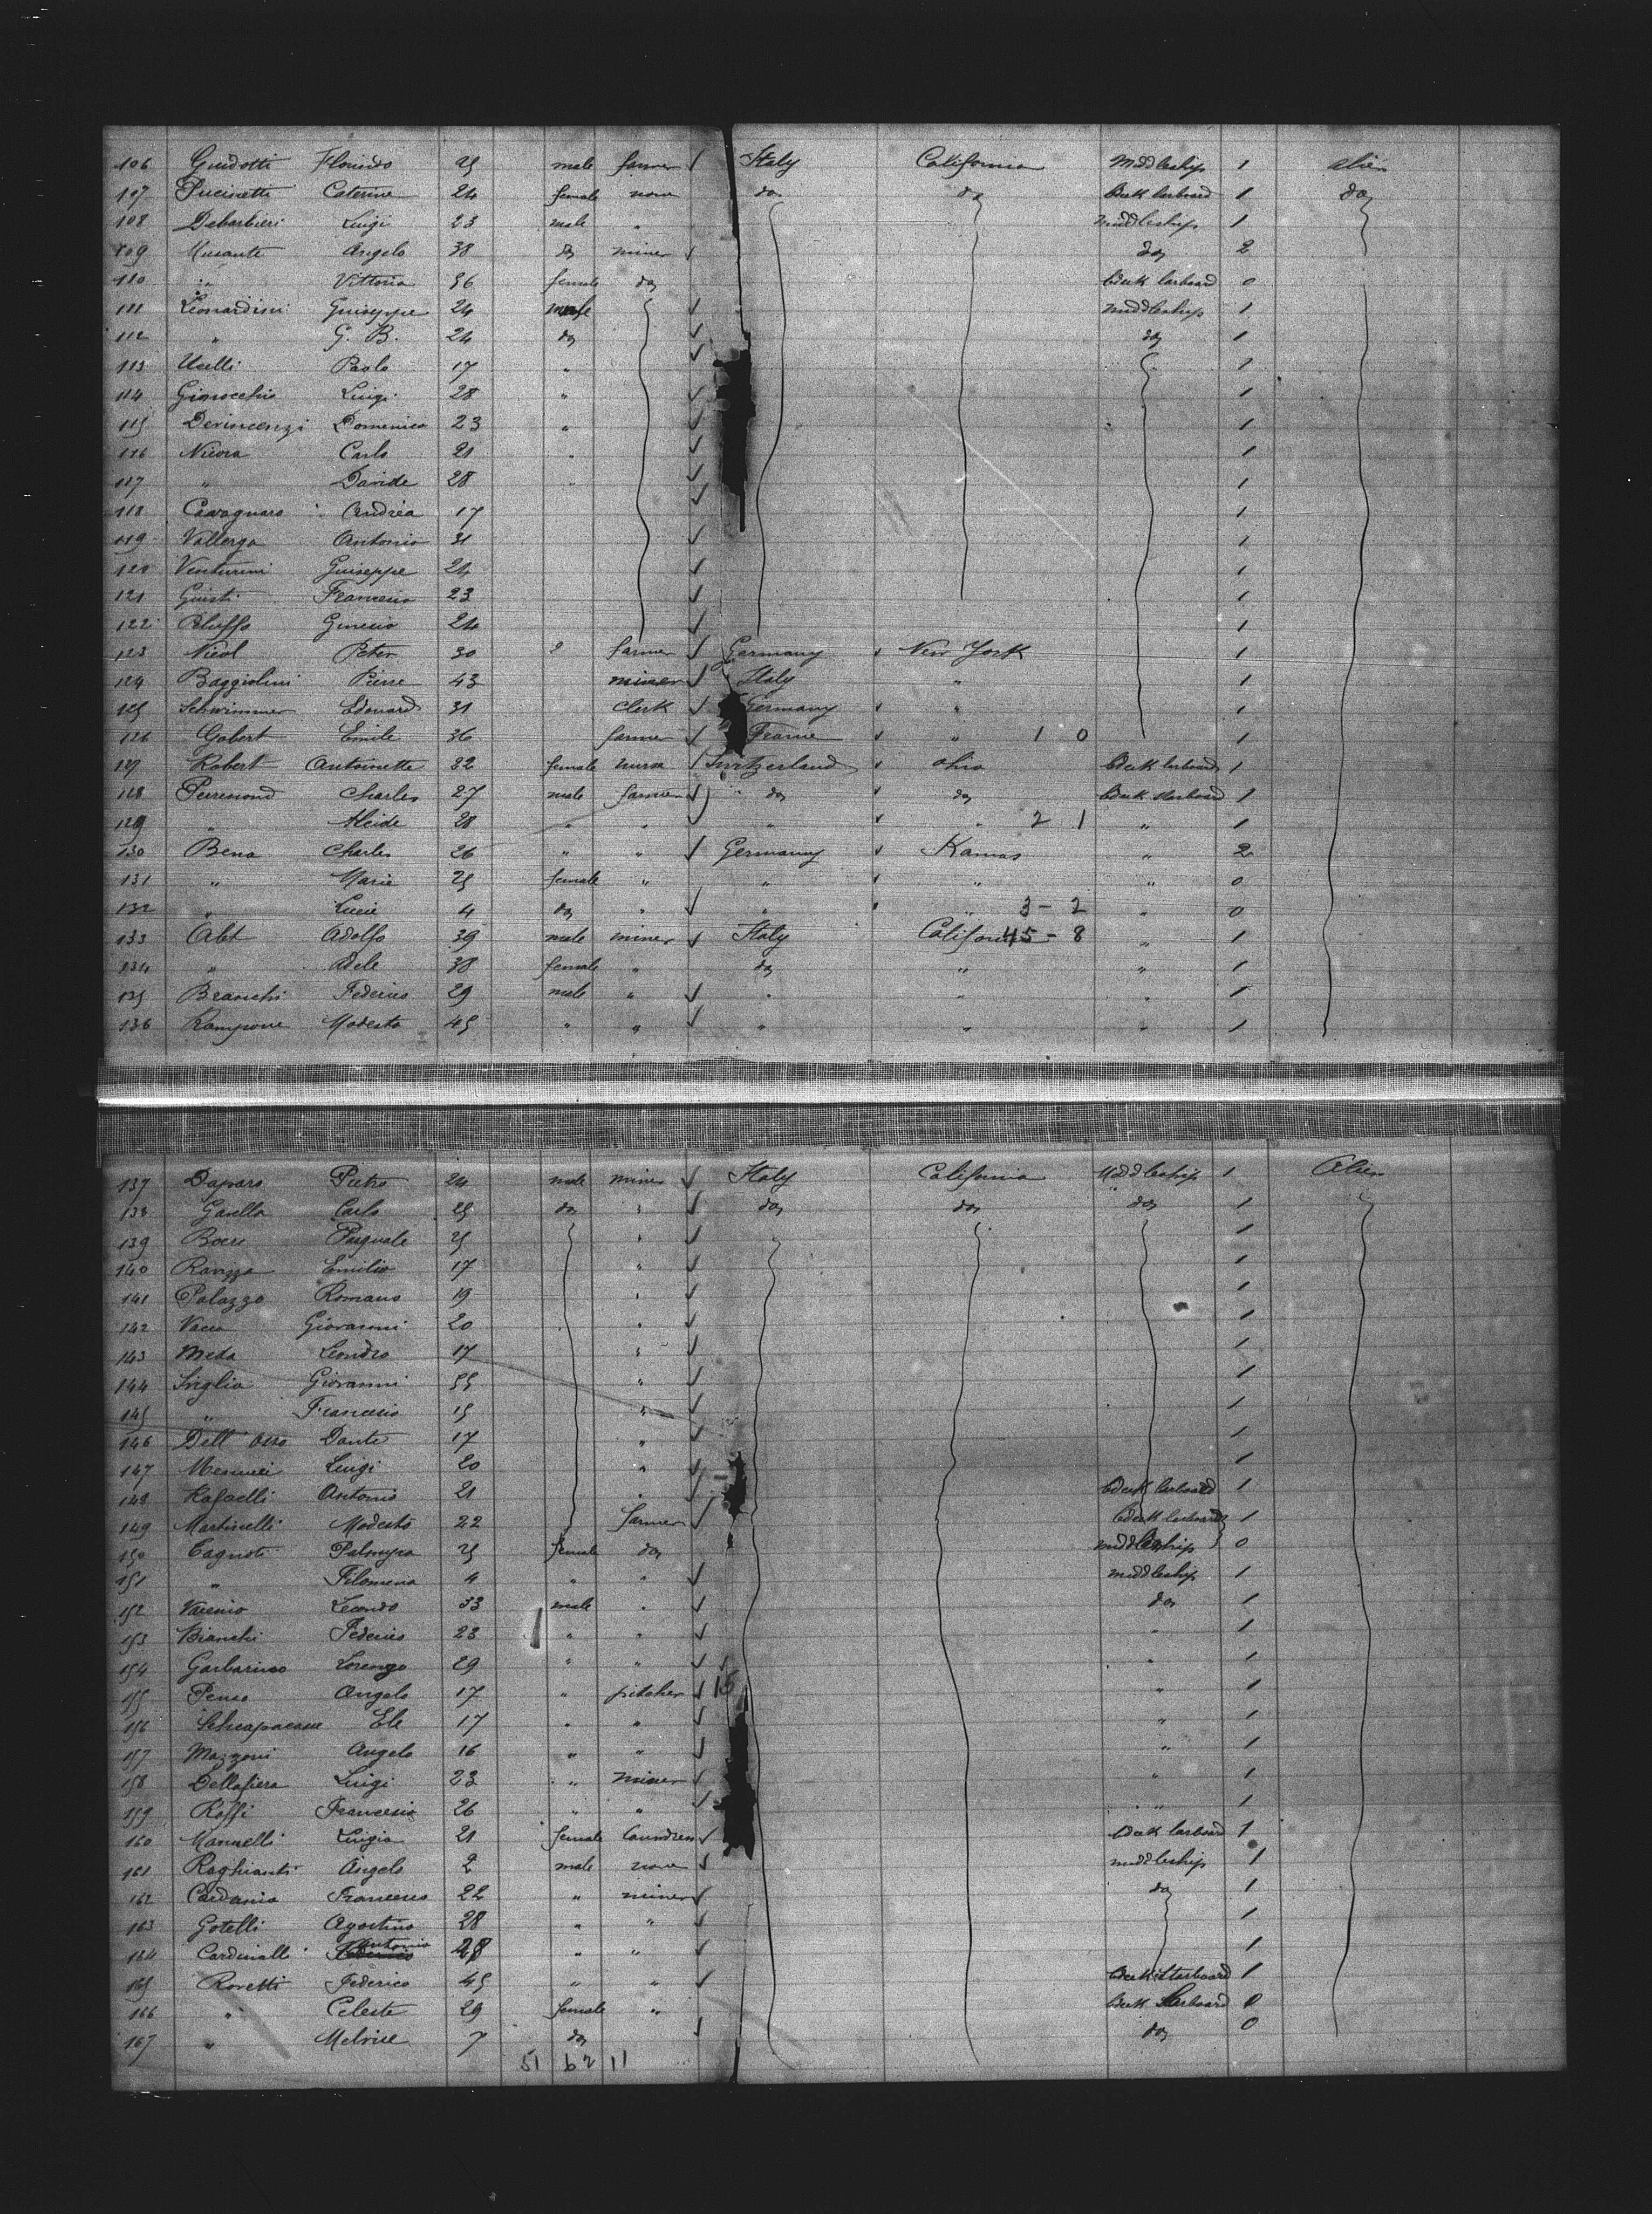 106 Guidotti Florindo 25 male farmer Italy California Middleship 1 alien
107 Pucinetti Caterine 24 female none do do Bdeck larboard 1 do
108 Debarbieri Luigi 23 male " middleship 1
109 Musante Angelo 38 do miner do 2
110 " Vittoria 36 female do Bdeck larboard 0
111 Leonardini Guiseppe 24 male middleship 1
112 " G. B. 24 do do 1
113 Uselli Paolo 17 " 1
114 Ginocchio Luigi 28 " 1
115 Devincenzi Domenico 23 " 1
116 Carlo 21 " 1
117 " Davide 28 " 1
118 Cavagnaro Andrea 17 1
119 Vallerga Antonio 31 1
120 Venturini Guiseppe 24 1
121 Guisti Francesco 23 1
122 24 1
123 Nicol Peter 30 farmer Germany New York 1
124 Baggiolini Pierre 43 miner Italy " 1
125 Schwimmer Edouard 31 clerk Germany " 1
126 Gobert Emile 36 farmer France " 1 0 1
127 Robert Antoinette 32 female nurse Switzerland Ohio Bdeck larboard 1
128 Perrenond Charles 27 male farmer do do Bdeck starboard 1
129 " Alcide 28 " " " " 2 1 " 1
130 Bena Charles 26 " " Germany Kansas " 2
131 " Marie 25 female " " " " 0
132 " Lucie 4 do " " " 3 - 2 " 0
133 Abt Adolfo 39 male miner Italy California 45 - 8 " 1
134 " Adele 38 female " do " " 1
135 Branchi Federico 29 male " " " " 1
136 Rampone Modesto 45 " " " " " 1
137 Daparo Pietro 24 male miner Italy California Middleship 1 Alien
138 Garella Carlo 25 do " do do do 1
139 Boeri Pasquale 25 " 1
140 Ravizza Emilio 17 " 1
141 Palazzo Romano 19 " 1
142 Vacca Giovanni 20 " 1
143 Meda Leandro 17 " 1
144 Sviglio Giovanni 55 " 1
145 " Francesco 15 " 1
146 Dell' Dante 17 " 1
147 Menucci Luigi 20 " 1
148 Rafaelli Antonio 21 " Bdeck larboard 1
149 Martinelli Modesto 22 farmer Bdeck larboard 1
150 Cagnoti Palmyra 25 female do middleship 0
151 " Filomena 4 " " middleship 1
152 33 male " do 1
153 Bianchi Federico 23 " " " 1
154 Garbarino Lorenzo 29 " " " 1
155 Penco Angelo 17 " 15 " 1
156 Schiapacasse Ele 17 " " " 1
157 Mazzoni Angelo 16 " " " 1
158 Dellapiera Luigi 23 " miner " 1
159 Raffi Francesco 26 " " " 1
160 Mannelli Luigia 21 female laundress Bdeck larboard 1
161 Raghianti Angelo 2 male none middleship 1
162 Cardania Francesco 22 " miner do 1
163 Gotelli Agostino 28 " " 1
164 Cardinalli Antonio 28 " " 1
165 Rovetti Federico 45 " " Bdeck starboard 1
166 " Celeste 29 female " Bdeck larboard 0
167 " 7 do do 0
51 62 11